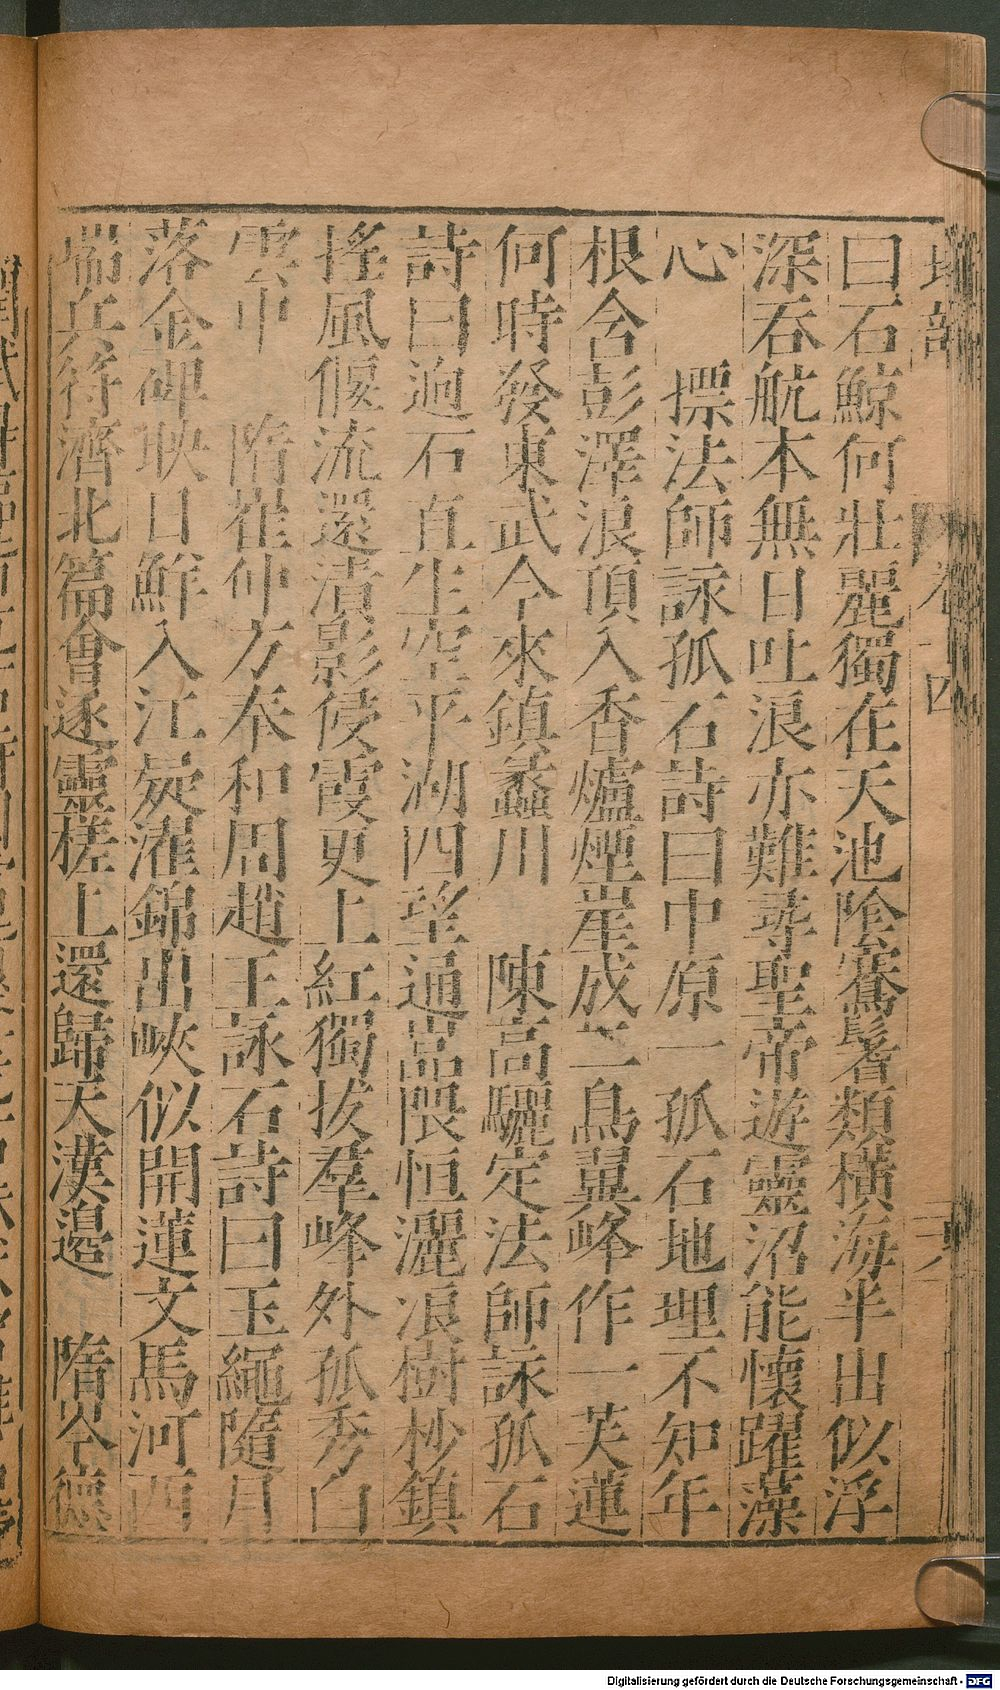 卷十四
曰石鯨何壯麗獨在天池陰騫鬐類橫海半出似浮
深吞航本無日吐浪亦難尋聖帝遊靈沼能懷躍藻
心　摽法師詠孤石詩曰中原一孤石地理不知年
根含彭澤浪頂入香爐煙崖成二鳥翼峰作一芙蓮
何時發東武今來鎮蠡川　陳高驪定法師詠孤石
詩曰逈石直生空平湖四望通喦隈恒灑浪樹杪鎮
搖風偃流還漬影侵霞更上紅獨拔羣峰外孤秀白
雲中　隋崔仲方奉和周趙王詠石詩曰玉繩隨月
落金碑映日鮮入江疑濯錦出峽似開蓮文馬河西
瑞兵符濟北篇會逐靈槎上還歸天漢邊　隋岑德
Digitalisierung gefördert durch die Deutsche Forschungsgemeinschaft - DFG